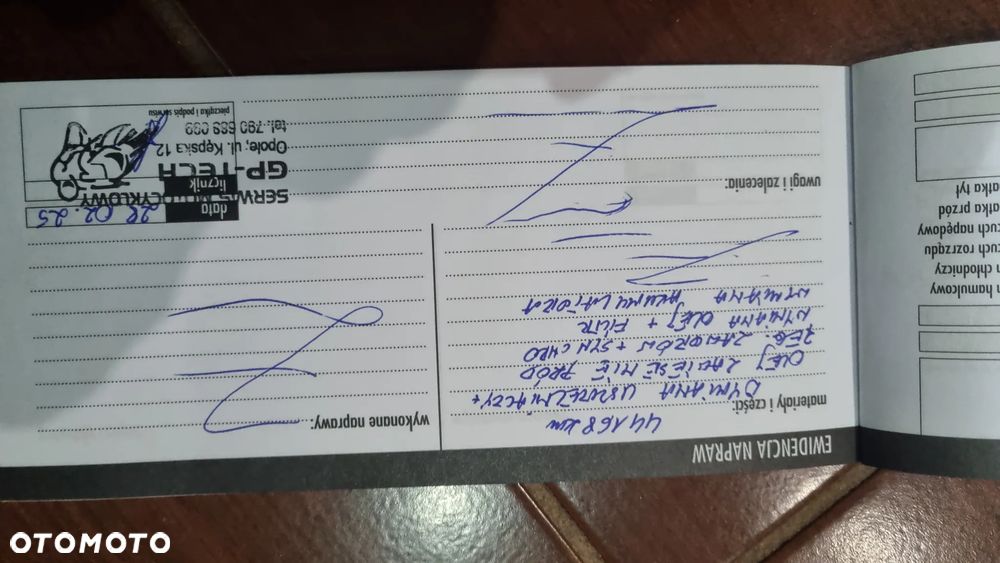 EWIDENCJA NAPRAW
materiały i części:
44168 km
WYMIANA USZCZELNIACZY +
OLEJ ZAWIESENIE PRZÓD
REG. ZAWORÓW + SYNCHRO
WYMIANA OLEJ + FILTR
WYMIANA AKUMULATORA
wykonane naprawy:
uwagi i zalecenia:
data
28.02.25
licznik
SERWIS MOTOCYKLOWY
GP-TECH
Opole, ul. Kępska 12
tel. 790
pieczątka i podpis serwisu
hamulcowy
chłodniczy
uch rozrządu
uch napędowy
atka przód
atka tył
OTOMOTO